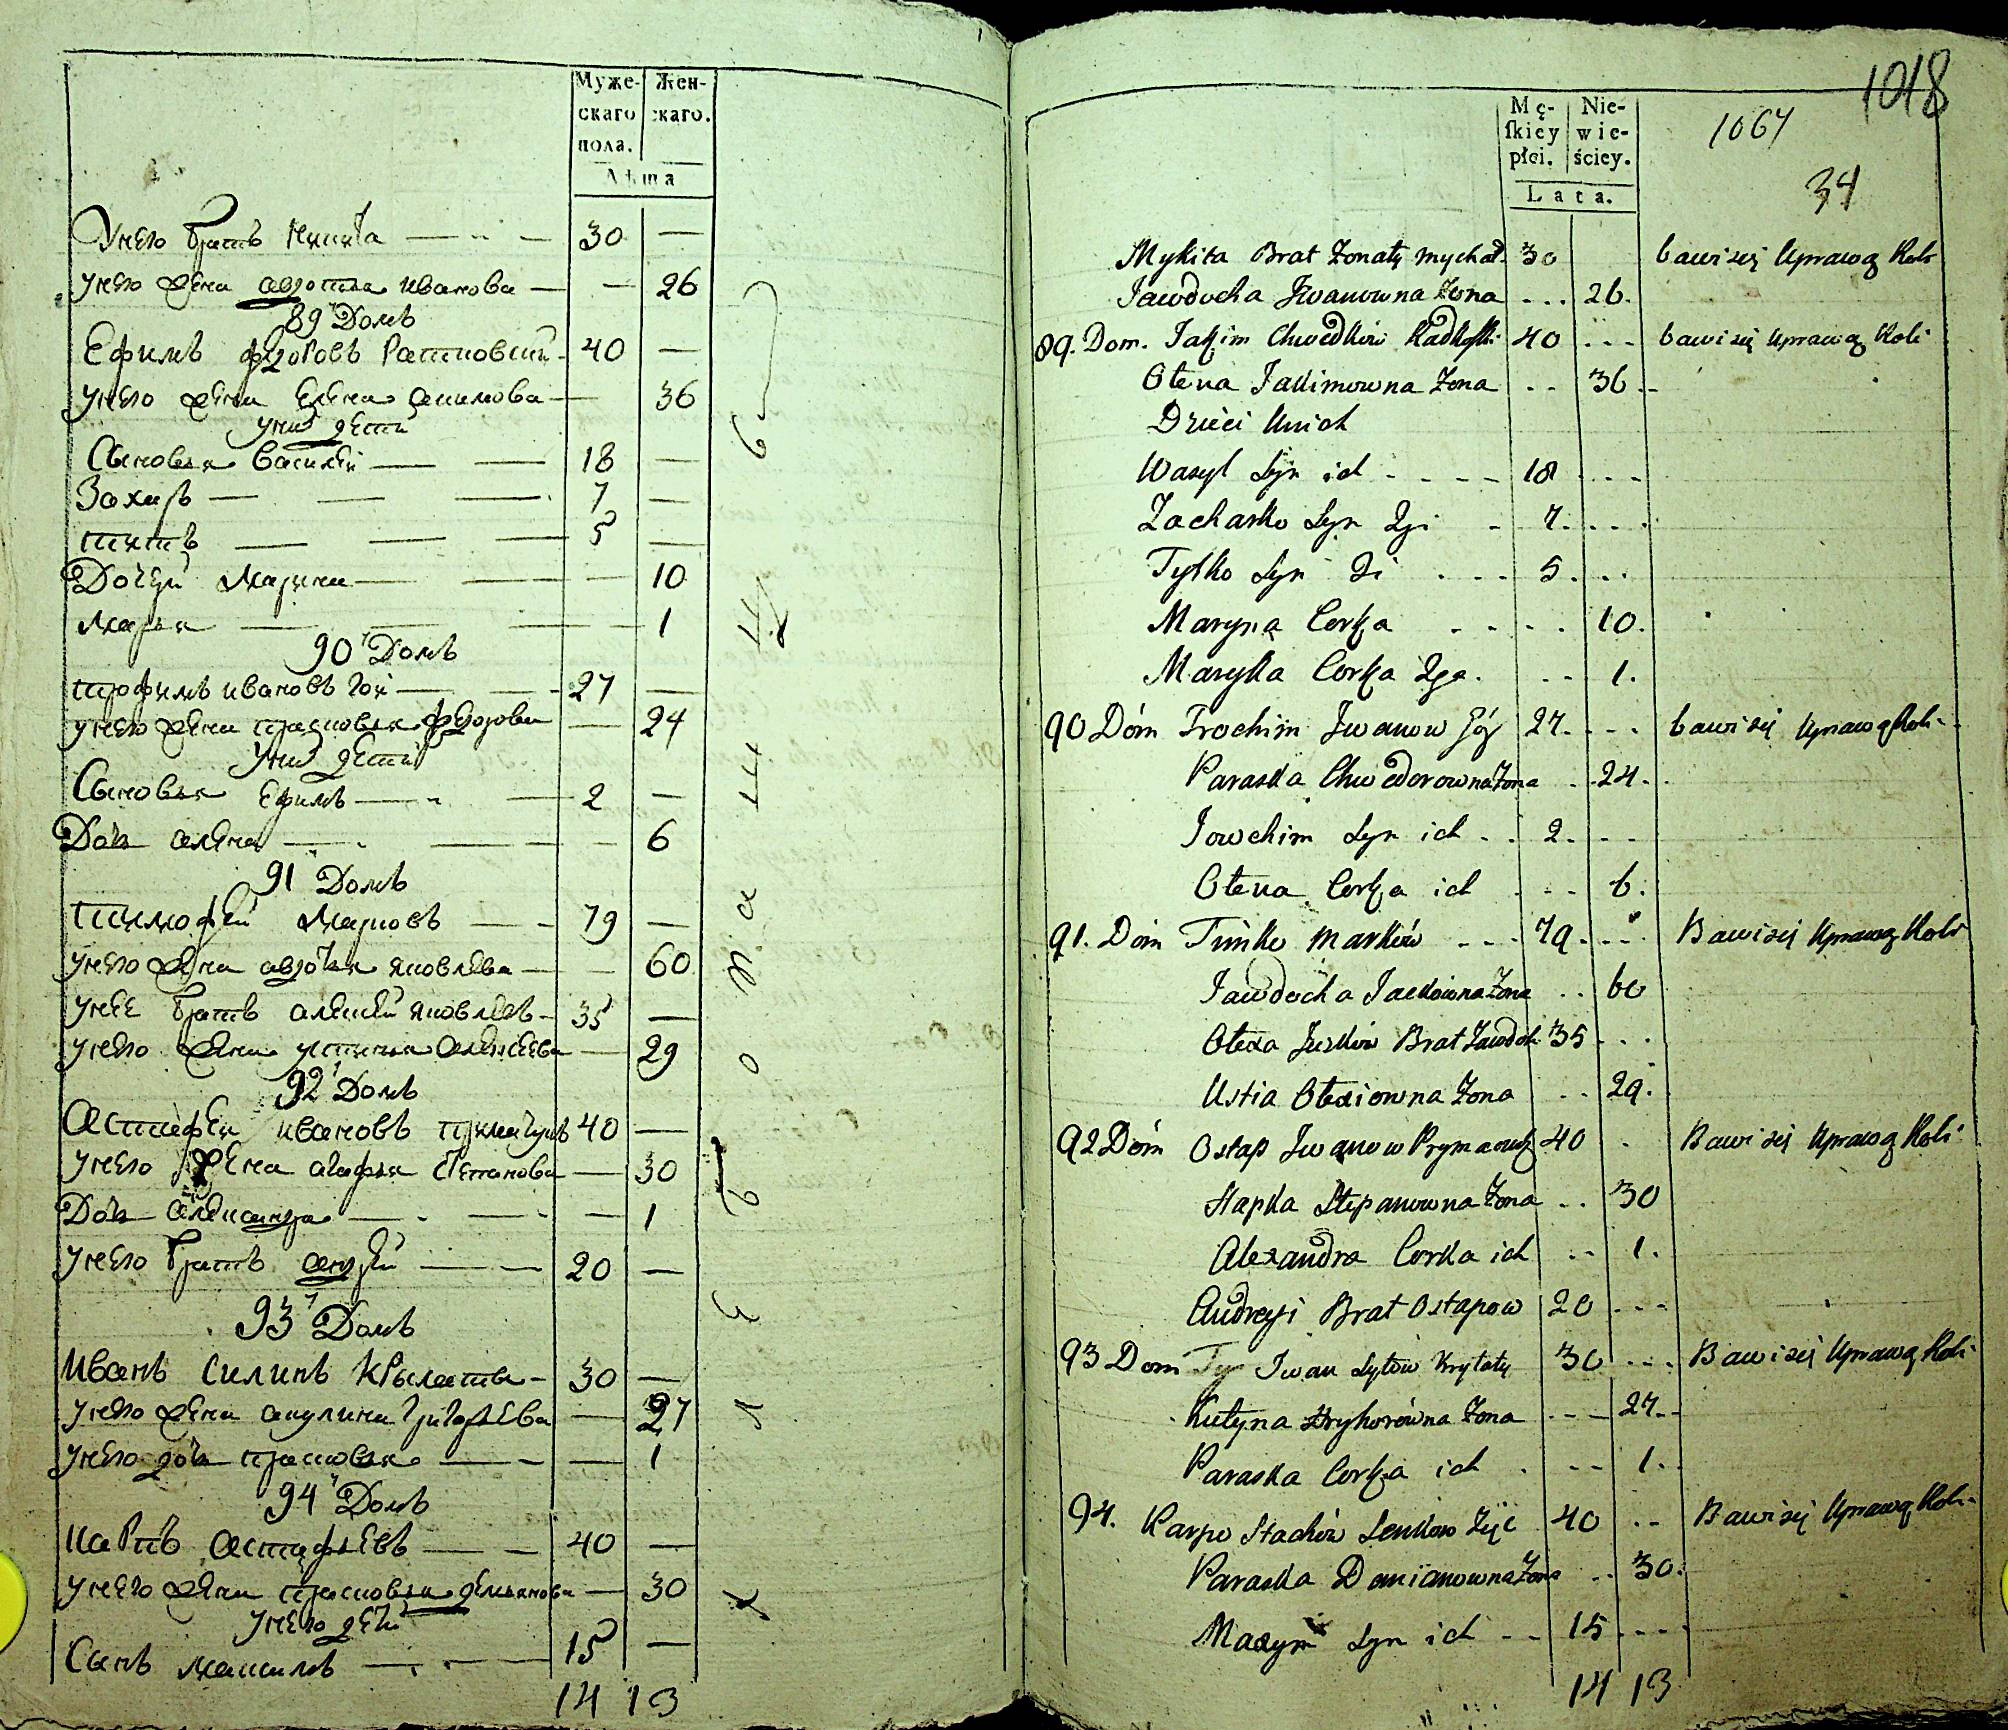 Муже-
скаго
пола.
Жен-
скаго.
Лѣта
У него братъ Никита — — — 30 —
У него жена Авдотья Иванова — — 26
89 Домъ
Ефимъ Федоровъ — 40 —
У него жена Елена Акимова — — 36
У них дети
Сыновья Василей — — 18 —
Захаръ — — — 7 —
Титъ — — — 5 —
Дочери Марина — — — 10
Марья — — — 1
90 Домъ
Трофимъ Ивановъ Гой — — 27 —
У него жена Прасковья Федорова — 24
У них дети
Сыновья Ефимъ — — 2 —
Дочь Алена — — — 6
91 Домъ
Тимофей Марковъ — — 79 —
У него жена Авдотья Яковлева — — 60
У нее братъ Алексей Яковлевъ — 35 —
У него жена Устинья Алексеева — 29
92 Домъ
Астафей Ивановъ 40 —
У него жена Агафья Степанова — 30
Дочь Александра — — — 1
У него братъ Андрей — — 20 —
93 Домъ
Иванъ Силинъ Крылаты — 30 —
У него жена Акулина Григорьева — 27
У него дочь Прасковья — — — 1
94 Домъ
Карпъ Астафьевъ — — 40 —
У него жена Прасковья Демьянова — 30
У него дети
Сынъ Максимъ — — 15 —
14 13
1018
1064
34
Mę-
ſkiey
płci.
Nie-
wie-
ściey.
Lata.
Mykita Brat Zonaty Mychał. 30 bawi się Uprawą Roli
Jawdocha Jwanowna Zona ... 26.
89. Dom. Jakim Chwedków 40 ... bawi się Uprawą Roli
Olena Jakimowna Zona .. 36..
Dzieci Unich
Wasyl Syn ich - - - - 18 ...
Zacharko Syn - 7. ...
Tytko Syn ... 5. ..
Maryna Corka .... 10.
Maryka Corka .. 1.
90 Dóm Trochim Jwanow Góy 27. ... bawi się Uprawą Roli
Paraska Chwedorowna Zona . . 24.
Jowchim Syn ich . . 2. ..
Olena Corka ich ... 6.
91. Dóm Timko Marków ... 79. ... Bawi się Uprawą Roli
Jawdocha Jackówna Zona .. 60
Olexa Jackow Brat Jawdoch. 35 ...
Ustia Olexiowna Zona .. 29.
92 Dóm Ostap Jwanow 40 . Bawi się Uprawą Roli
Hapka Stepanowna Zona .. 30
Alexandra Corka ich .. 1.
Andreyi Brat Ostapow 20 ...
93 Dom Jwan Sylów Krylaty 30 ... Bawi się Uprawą Roli
Kulyna Hryhorówna Zona ... 27..
Paraska Corka ich . .. 1..
94. Karpo Stachów 40 .. Bawi się Uprawą Roli
Paraska Damianowna Zona .. 30.
Maxym Syn ich .. 15 ....
14 13